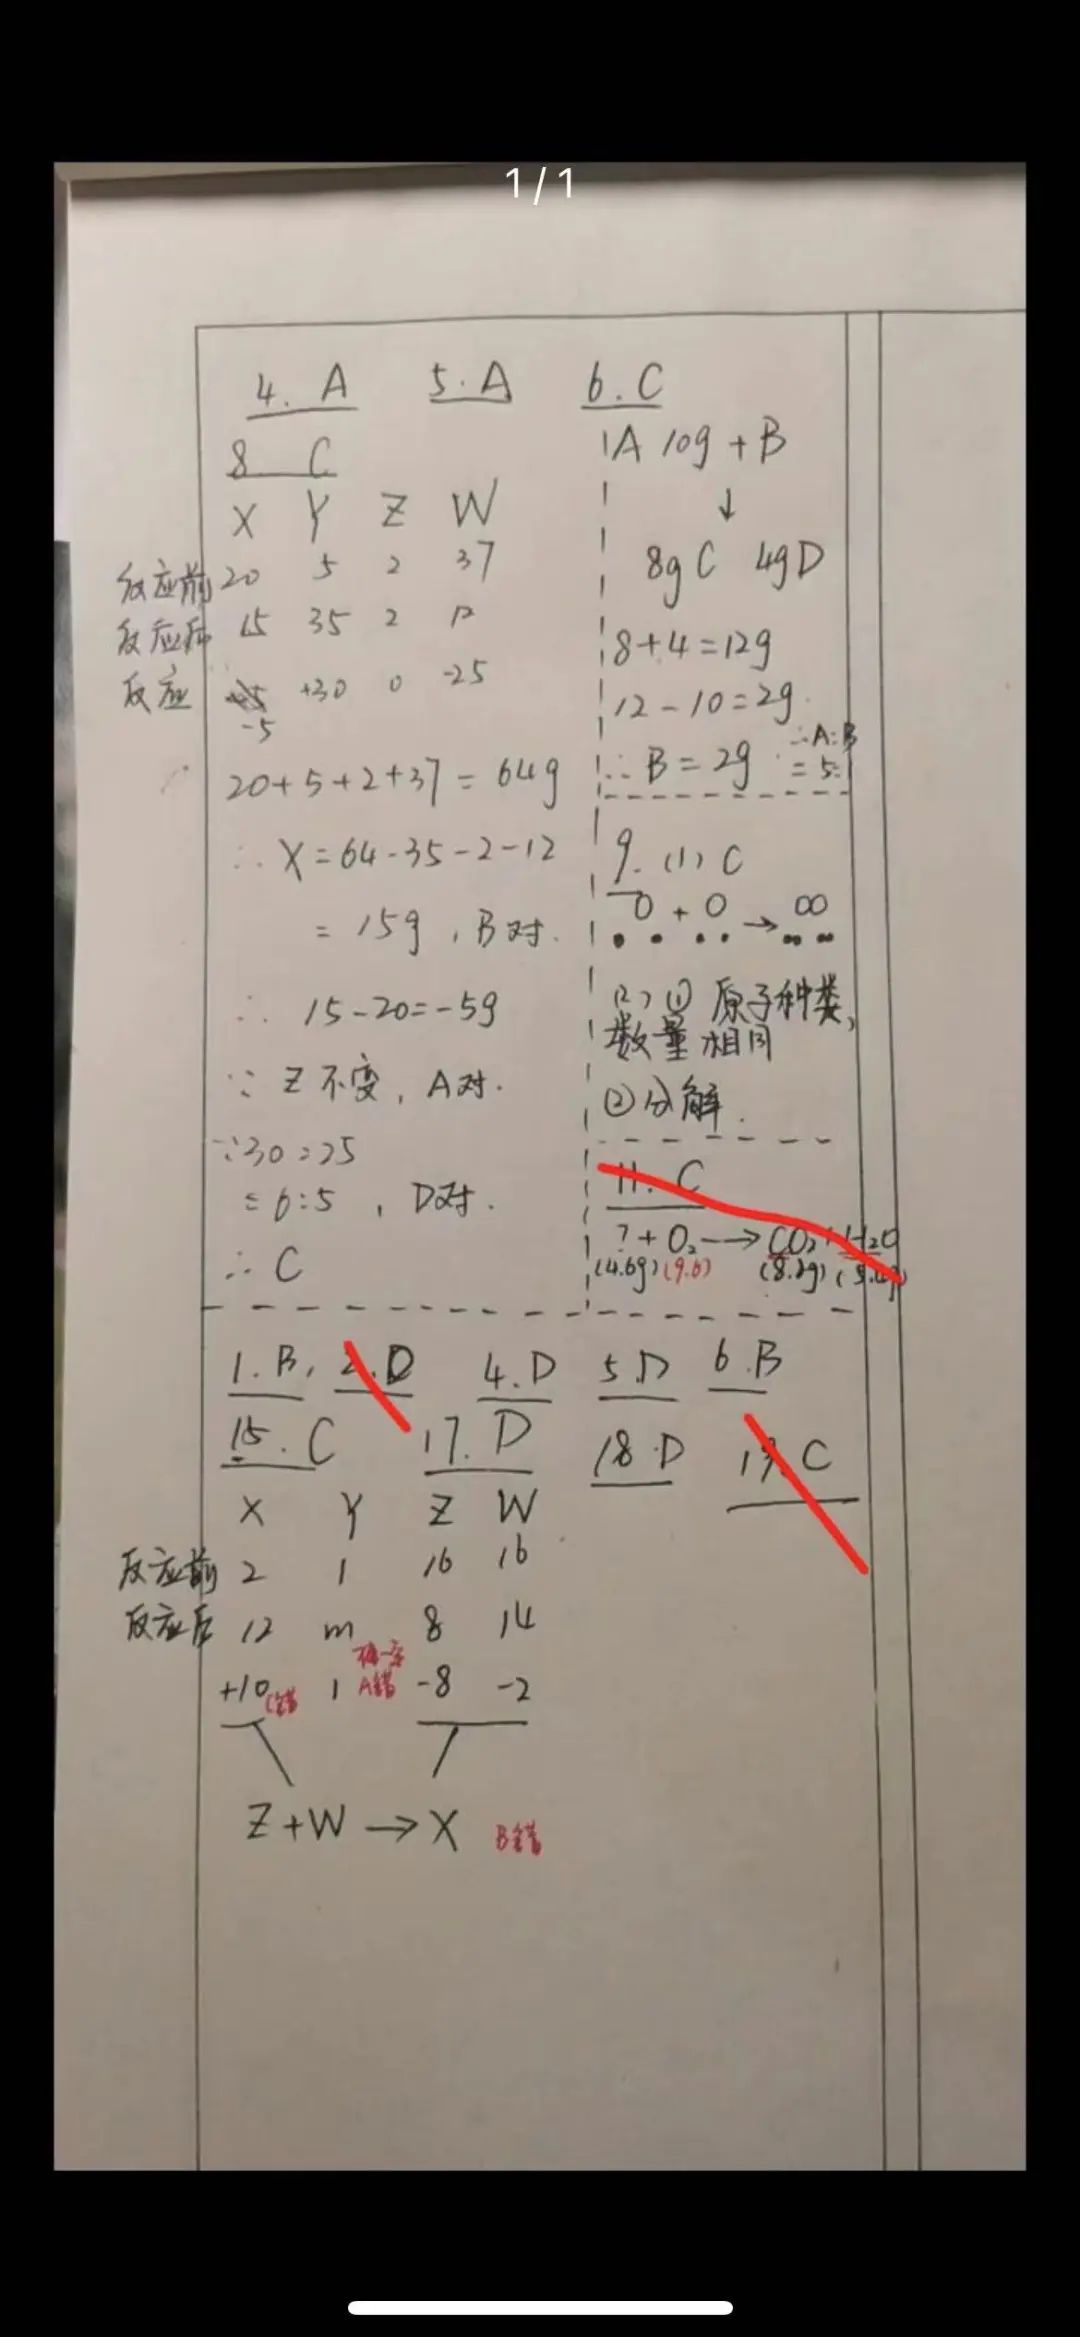 1/1
4. A 5. A 6. C
8 C
X Y Z W
反应前 20 5 2 37
反应后 15 35 2 12
反应 +30 0 -25
-5
20+5+2+37=64g
∴ X=64-35-2-12
=15g, B对.
∴ 15-20=-5g
∵ Z不变, A对.
∵30:25
=6:5, D对.
∴ C
A 10g + B
↓
8g C 4g D
8+4=12g
12-10=2g.
∴ B=2g ∴A:B
=5:1
9. (1) C
(2) ① 原子种类,
数量相同
②分解.
11. C
?+O₂→CO₂+H₂O
(4.6g) (9.6)
1.B. 2.D 4.D 5.D 6.B
15. C 17. D 18.D 19.C
X Y Z W
反应前 2 1 16 16
反应后 12 m 8 14
不一定
+10 C错 1 A错 -8 -2
Z+W→X B错